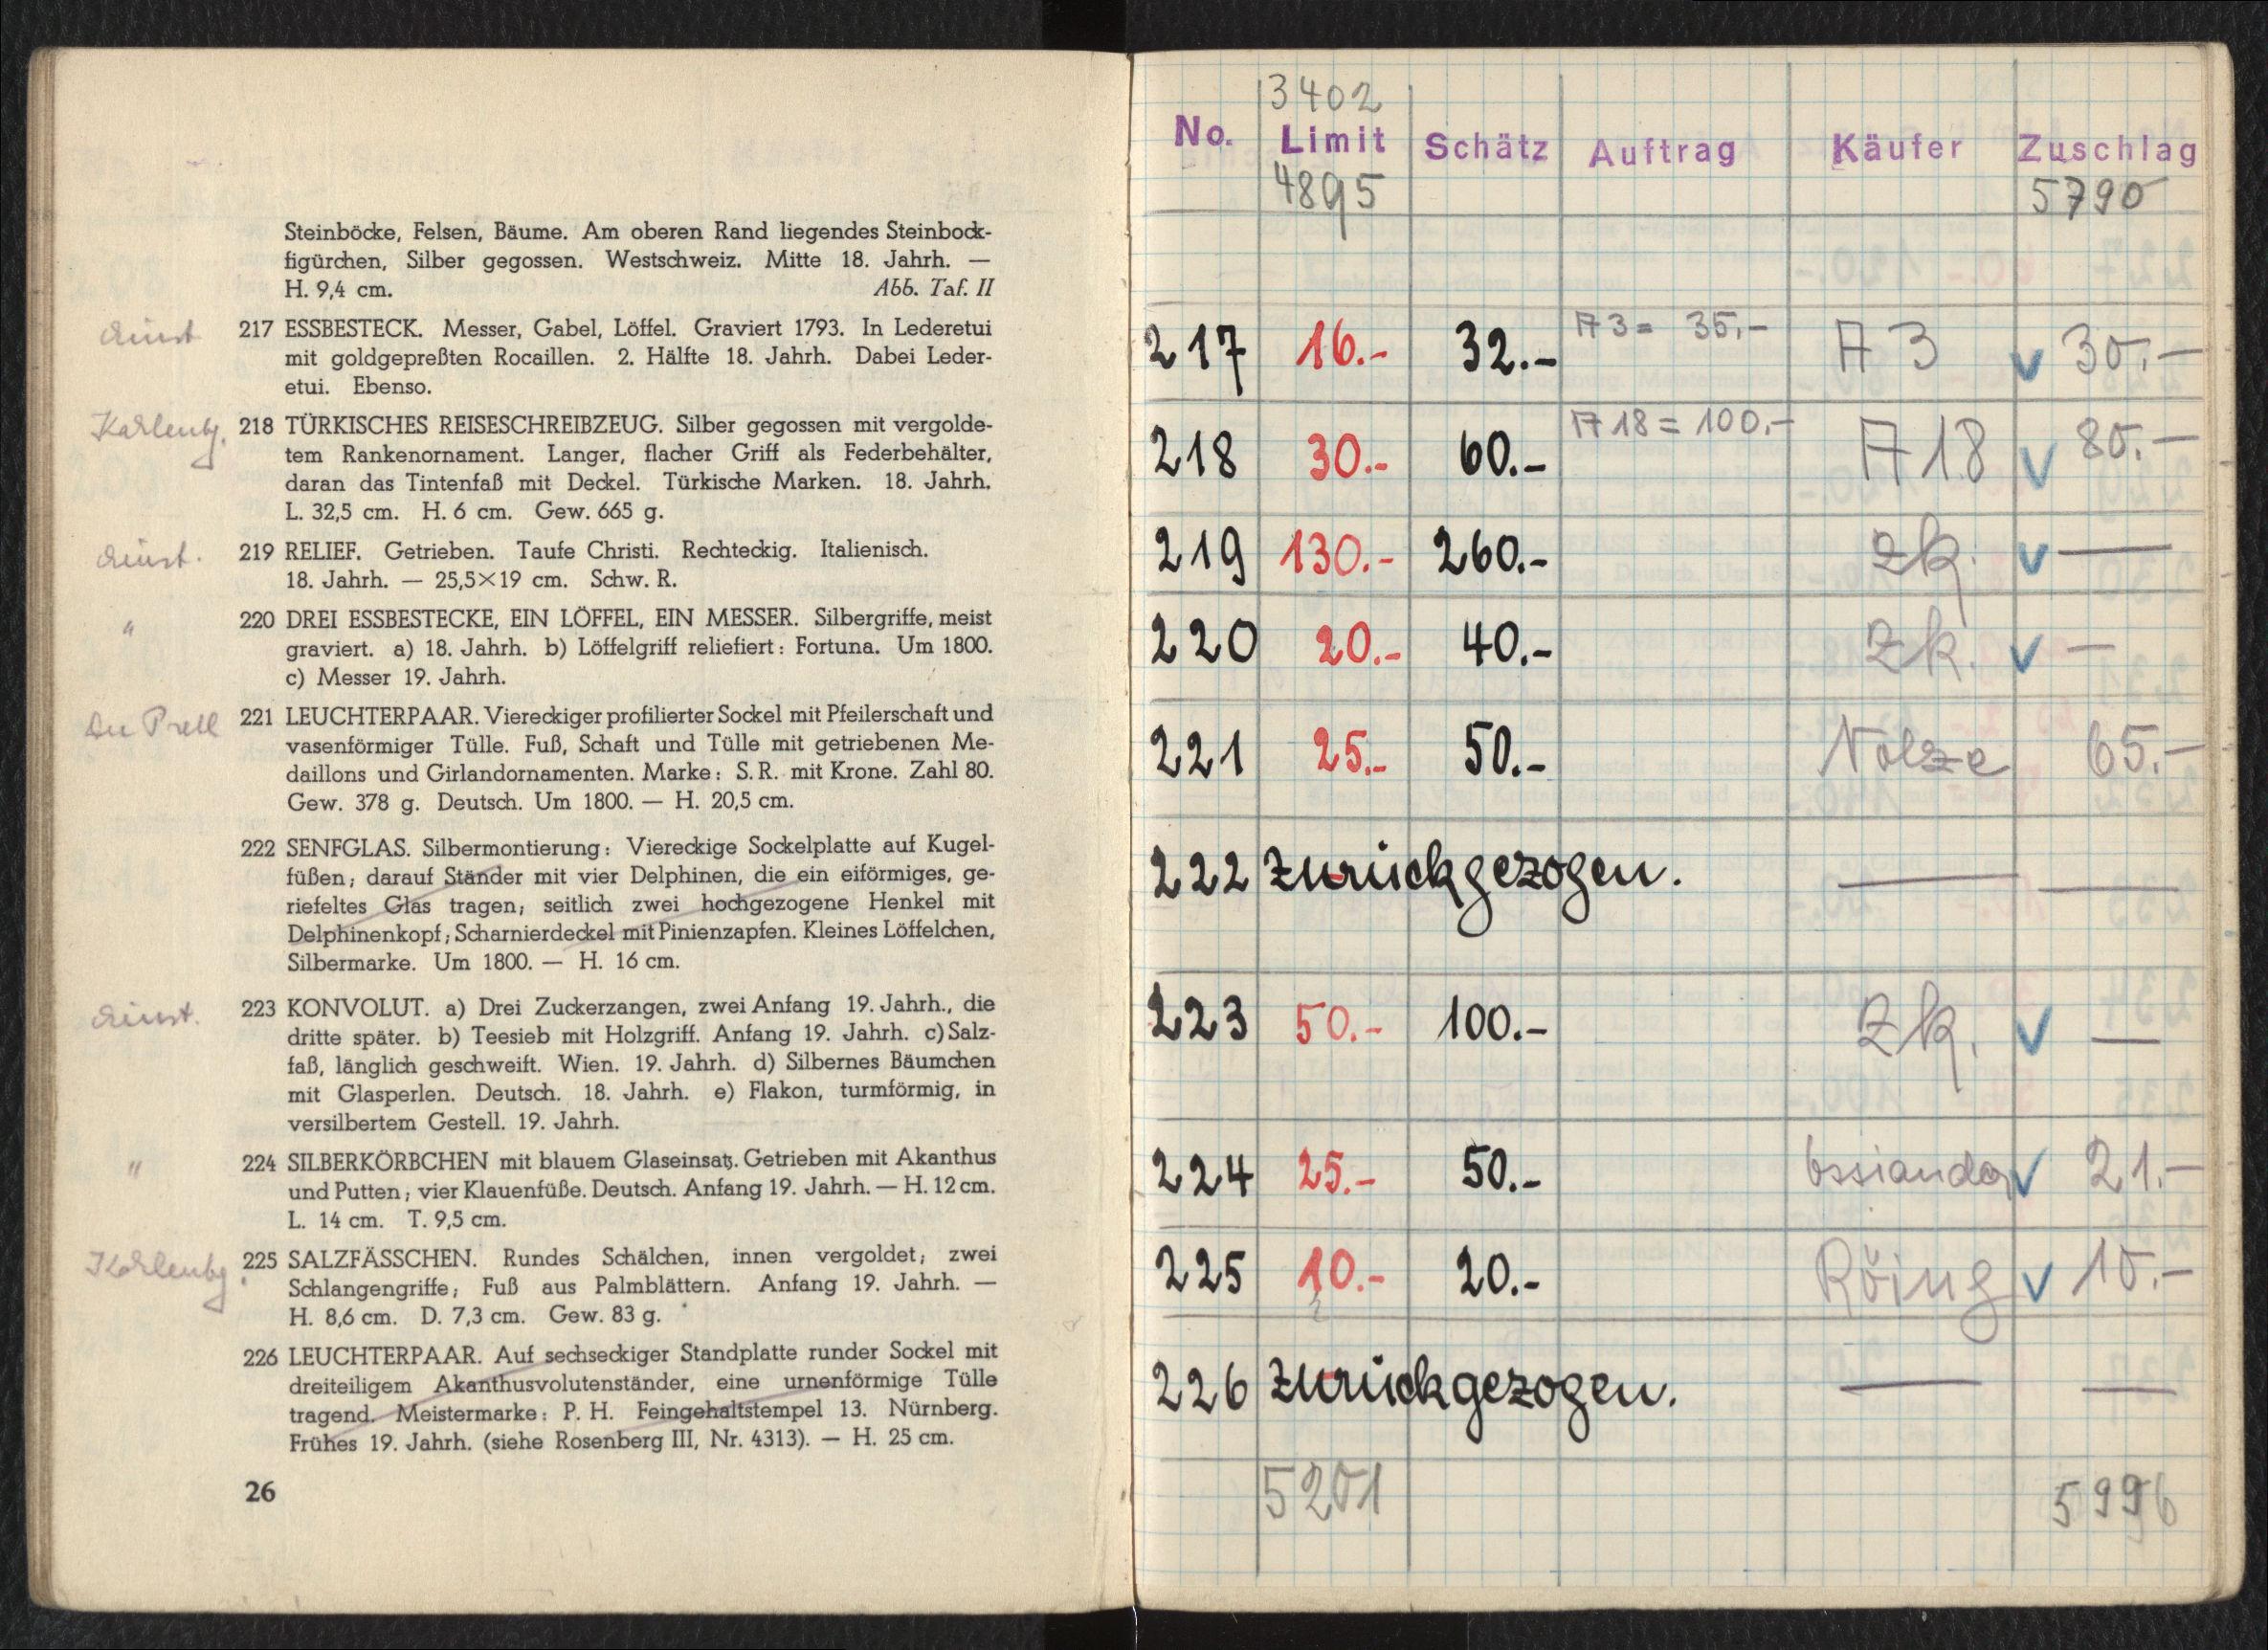 Steinböcke, Felsen, Bäume. Am oberen Rand liegendes Steinbock-
figürchen, Silber gegossen. Westschweiz. Mitte 18. Jahrh. —
H. 9,4 cm. Abb. Taf. II
217 ESSBESTECK. Messer, Gabel, Löffel. Graviert 1793. In Lederetui
mit goldgepreßten Rocaillen. 2. Hälfte 18. Jahrh. Dabei Leder-
etui. Ebenso.
218 TÜRKISCHES REISESCHREIBZEUG. Silber gegossen mit vergolde-
tem Rankenornament. Langer, flacher Griff als Federbehälter,
daran das Tintenfaß mit Deckel. Türkische Marken. 18. Jahrh.
L. 32,5 cm. H. 6 cm. Gew. 665 g.
219 RELIEF. Getrieben. Taufe Christi. Rechteckig. Italienisch.
18. Jahrh. — 25,5×19 cm. Schw. R.
" 220 DREI ESSBESTECKE, EIN LÖFFEL, EIN MESSER. Silbergriffe, meist
graviert. a) 18. Jahrh. b) Löffelgriff reliefiert: Fortuna. Um 1800.
c) Messer 19. Jahrh.
Du Prell 221 LEUCHTERPAAR. Viereckiger profilierter Sockel mit Pfeilerschaft und
vasenförmiger Tülle. Fuß, Schaft und Tülle mit getriebenen Me-
daillons und Girlandornamenten. Marke: S. R. mit Krone. Zahl 80.
Gew. 378 g. Deutsch. Um 1800. — H. 20,5 cm.
222 SENFGLAS. Silbermontierung: Viereckige Sockelplatte auf Kugel-
füßen; darauf Ständer mit vier Delphinen, die ein eiförmiges, ge-
riefeltes Glas tragen; seitlich zwei hochgezogene Henkel mit
Delphinenkopf; Scharnierdeckel mit Pinienzapfen. Kleines Löffelchen,
Silbermarke. Um 1800. — H. 16 cm.
223 KONVOLUT. a) Drei Zuckerzangen, zwei Anfang 19. Jahrh., die
dritte später. b) Teesieb mit Holzgriff. Anfang 19. Jahrh. c) Salz-
faß, länglich geschweift. Wien. 19. Jahrh. d) Silbernes Bäumchen
mit Glasperlen. Deutsch. 18. Jahrh. e) Flakon, turmförmig, in
versilbertem Gestell. 19. Jahrh.
" 224 SILBERKÖRBCHEN mit blauem Glaseinsatz. Getrieben mit Akanthus
und Putten; vier Klauenfüße. Deutsch. Anfang 19. Jahrh. — H. 12 cm.
L. 14 cm. T. 9,5 cm.
225 SALZFÄSSCHEN. Rundes Schälchen, innen vergoldet; zwei
Schlangengriffe; Fuß aus Palmblättern. Anfang 19. Jahrh. —
H. 8,6 cm. D. 7,3 cm. Gew. 83 g.
226 LEUCHTERPAAR. Auf sechseckiger Standplatte runder Sockel mit
dreiteiligem Akanthusvolutenständer, eine urnenförmige Tülle
tragend. Meistermarke: P. H. Feingehaltstempel 13. Nürnberg.
Frühes 19. Jahrh. (siehe Rosenberg III, Nr. 4313). — H. 25 cm.
26
3402
No. Limit Schätz Auftrag Käufer Zuschlag
4895 5790
217 16.- 32.- A 3 = 35,- A 3 30.-
218 30.- 60.- A 18 = 100.- A 18 80.-
219 130.- 260.- zk. —
220 20.- 40.- zk. —
221 25.- 50.- Nolze 65.-
222 Zurückgezogen. — —
223 50.- 100.- zk. —
224 25.- 50.- 21.-
225 10.- 20.- 10.-
226 Zurückgezogen. — —
5201 5996